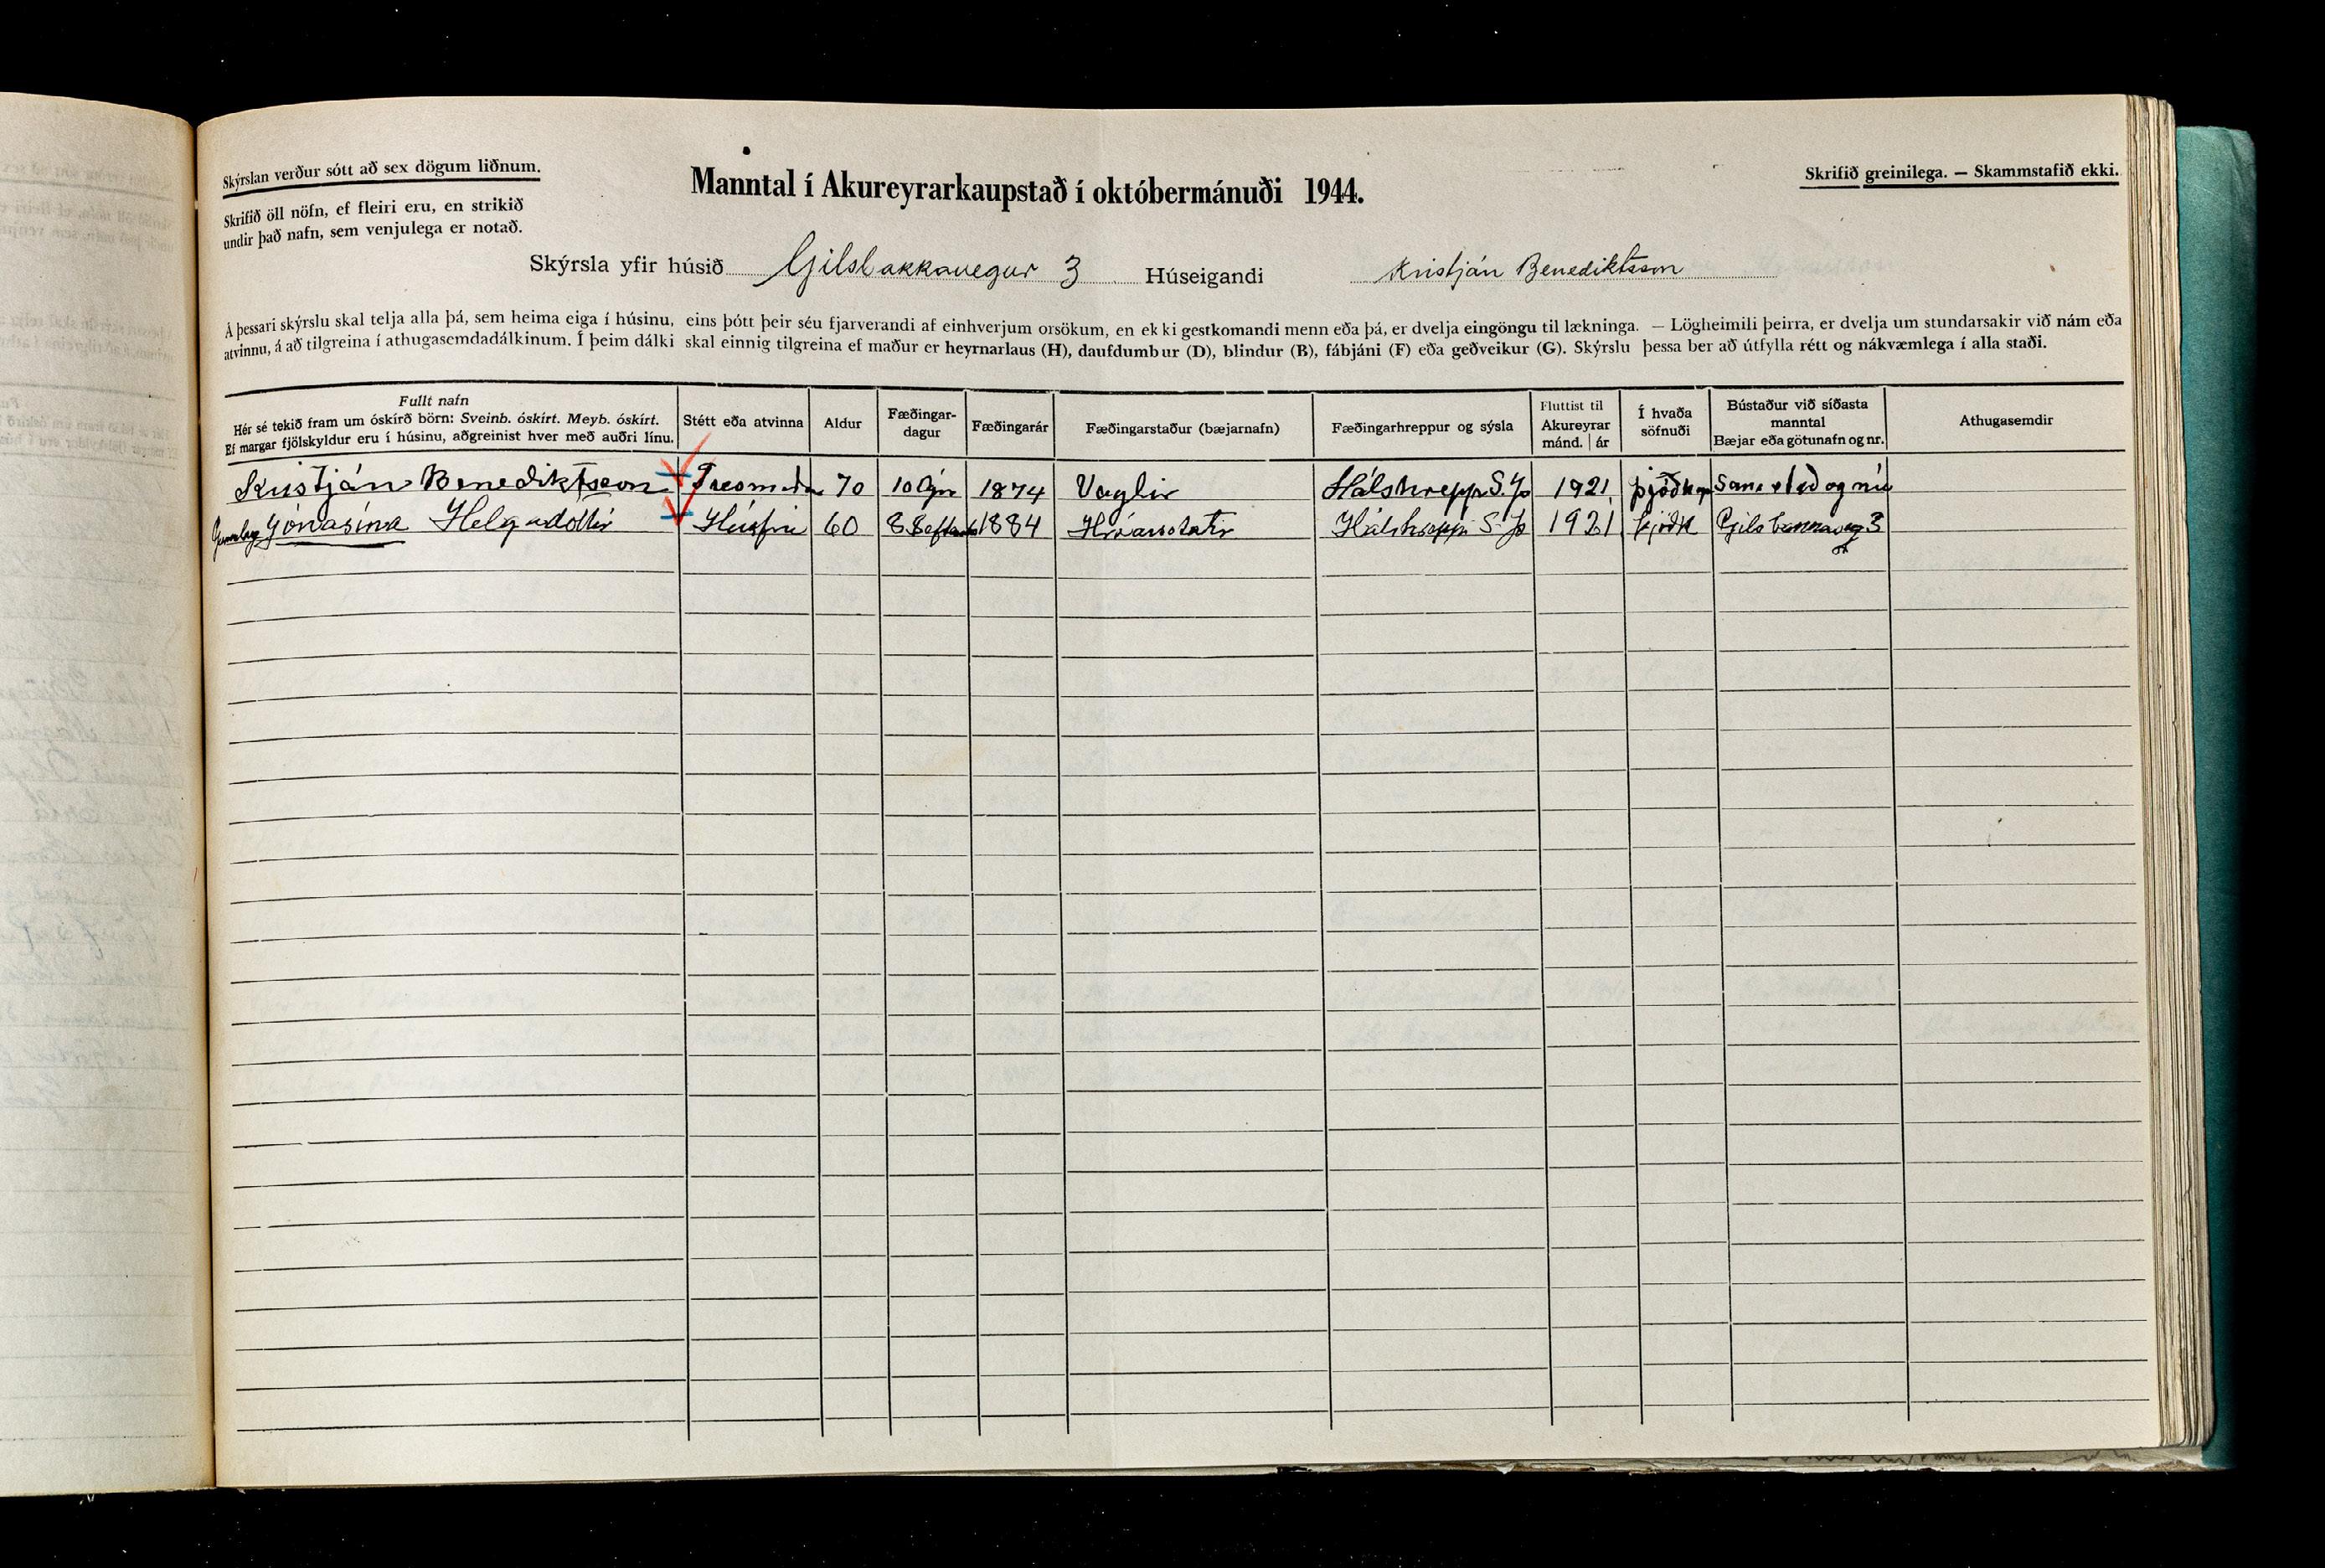 Skýrslan verður sótt að sex dögum liðnum.
Skrifið öll nöfn, ef fleiri eru, en strikið
undir það nafn, sem venjulega er notað.
Manntal í Akureyrarkaupstað í októbermánuði 1944.
Skrifið greinilega. — Skammstafið ekki.
Skýrsla yfir húsið Gilsbakkavegur 3 Húseigandi Kristján Benediktsson
Á þessari skýrslu skal telja alla þá, sem heima eiga í húsinu, eins þótt þeir séu fjarverandi af einhverjum orsökum, en ekki gestkomandi menn eða þá, er dvelja eingöngu til lækninga. — Lögheimili þeirra, er dvelja um stundarsakir við nám eða
atvinnu, á að tilgreina í athugasemdadálkinum. Í þeim dálki skal einnig tilgreina ef maður er heyrnarlaus (H), daufdumbur (D), blindur (B), fábjáni (F) eða geðveikur (G). Skýrslu þessa ber að útfylla rétt og nákvæmlega í alla staði.
Fullt nafn
Hér sé tekið fram um óskírð börn: Sveinb. óskírt. Meyb. óskírt.
Ef margar fjölskyldur eru í húsinu, aðgreinist hver með auðri línu.
Stétt eða atvinna
Aldur
Fæðingar-
dagur
Fæðingarár
Fæðingarstaður (bæjarnafn)
Fæðingarhreppur og sýsla
Fluttist til
Akureyrar
mánd. | ár
Í hvaða
söfnuði
Bústaður við síðasta
manntal
Bæjar eða götunafn og nr.
Athugasemdir
Kristján Benediktsson 70 10 1874 Vaglir Hálshrepp S.Þ 1921 og nú
Jónasína Helgadóttir Húsfrú 60 8 1884 Hálshreppi S.Þ 1921 þjóðk 3